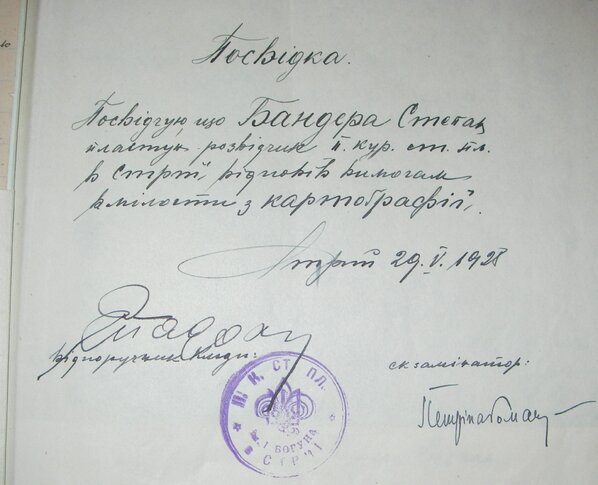 Посвідка.
Посвідчую, що Бандера Степан
пластун розвідчик II. кур. ст. пл.
в Стрию відповів вимогам
вмілости з картографії.
Стрий 29. V. 1928
відпоручник Кнди:
екзамінатор:
СТ. ПЛ.
І. БОГУНА
В СТРИЮ